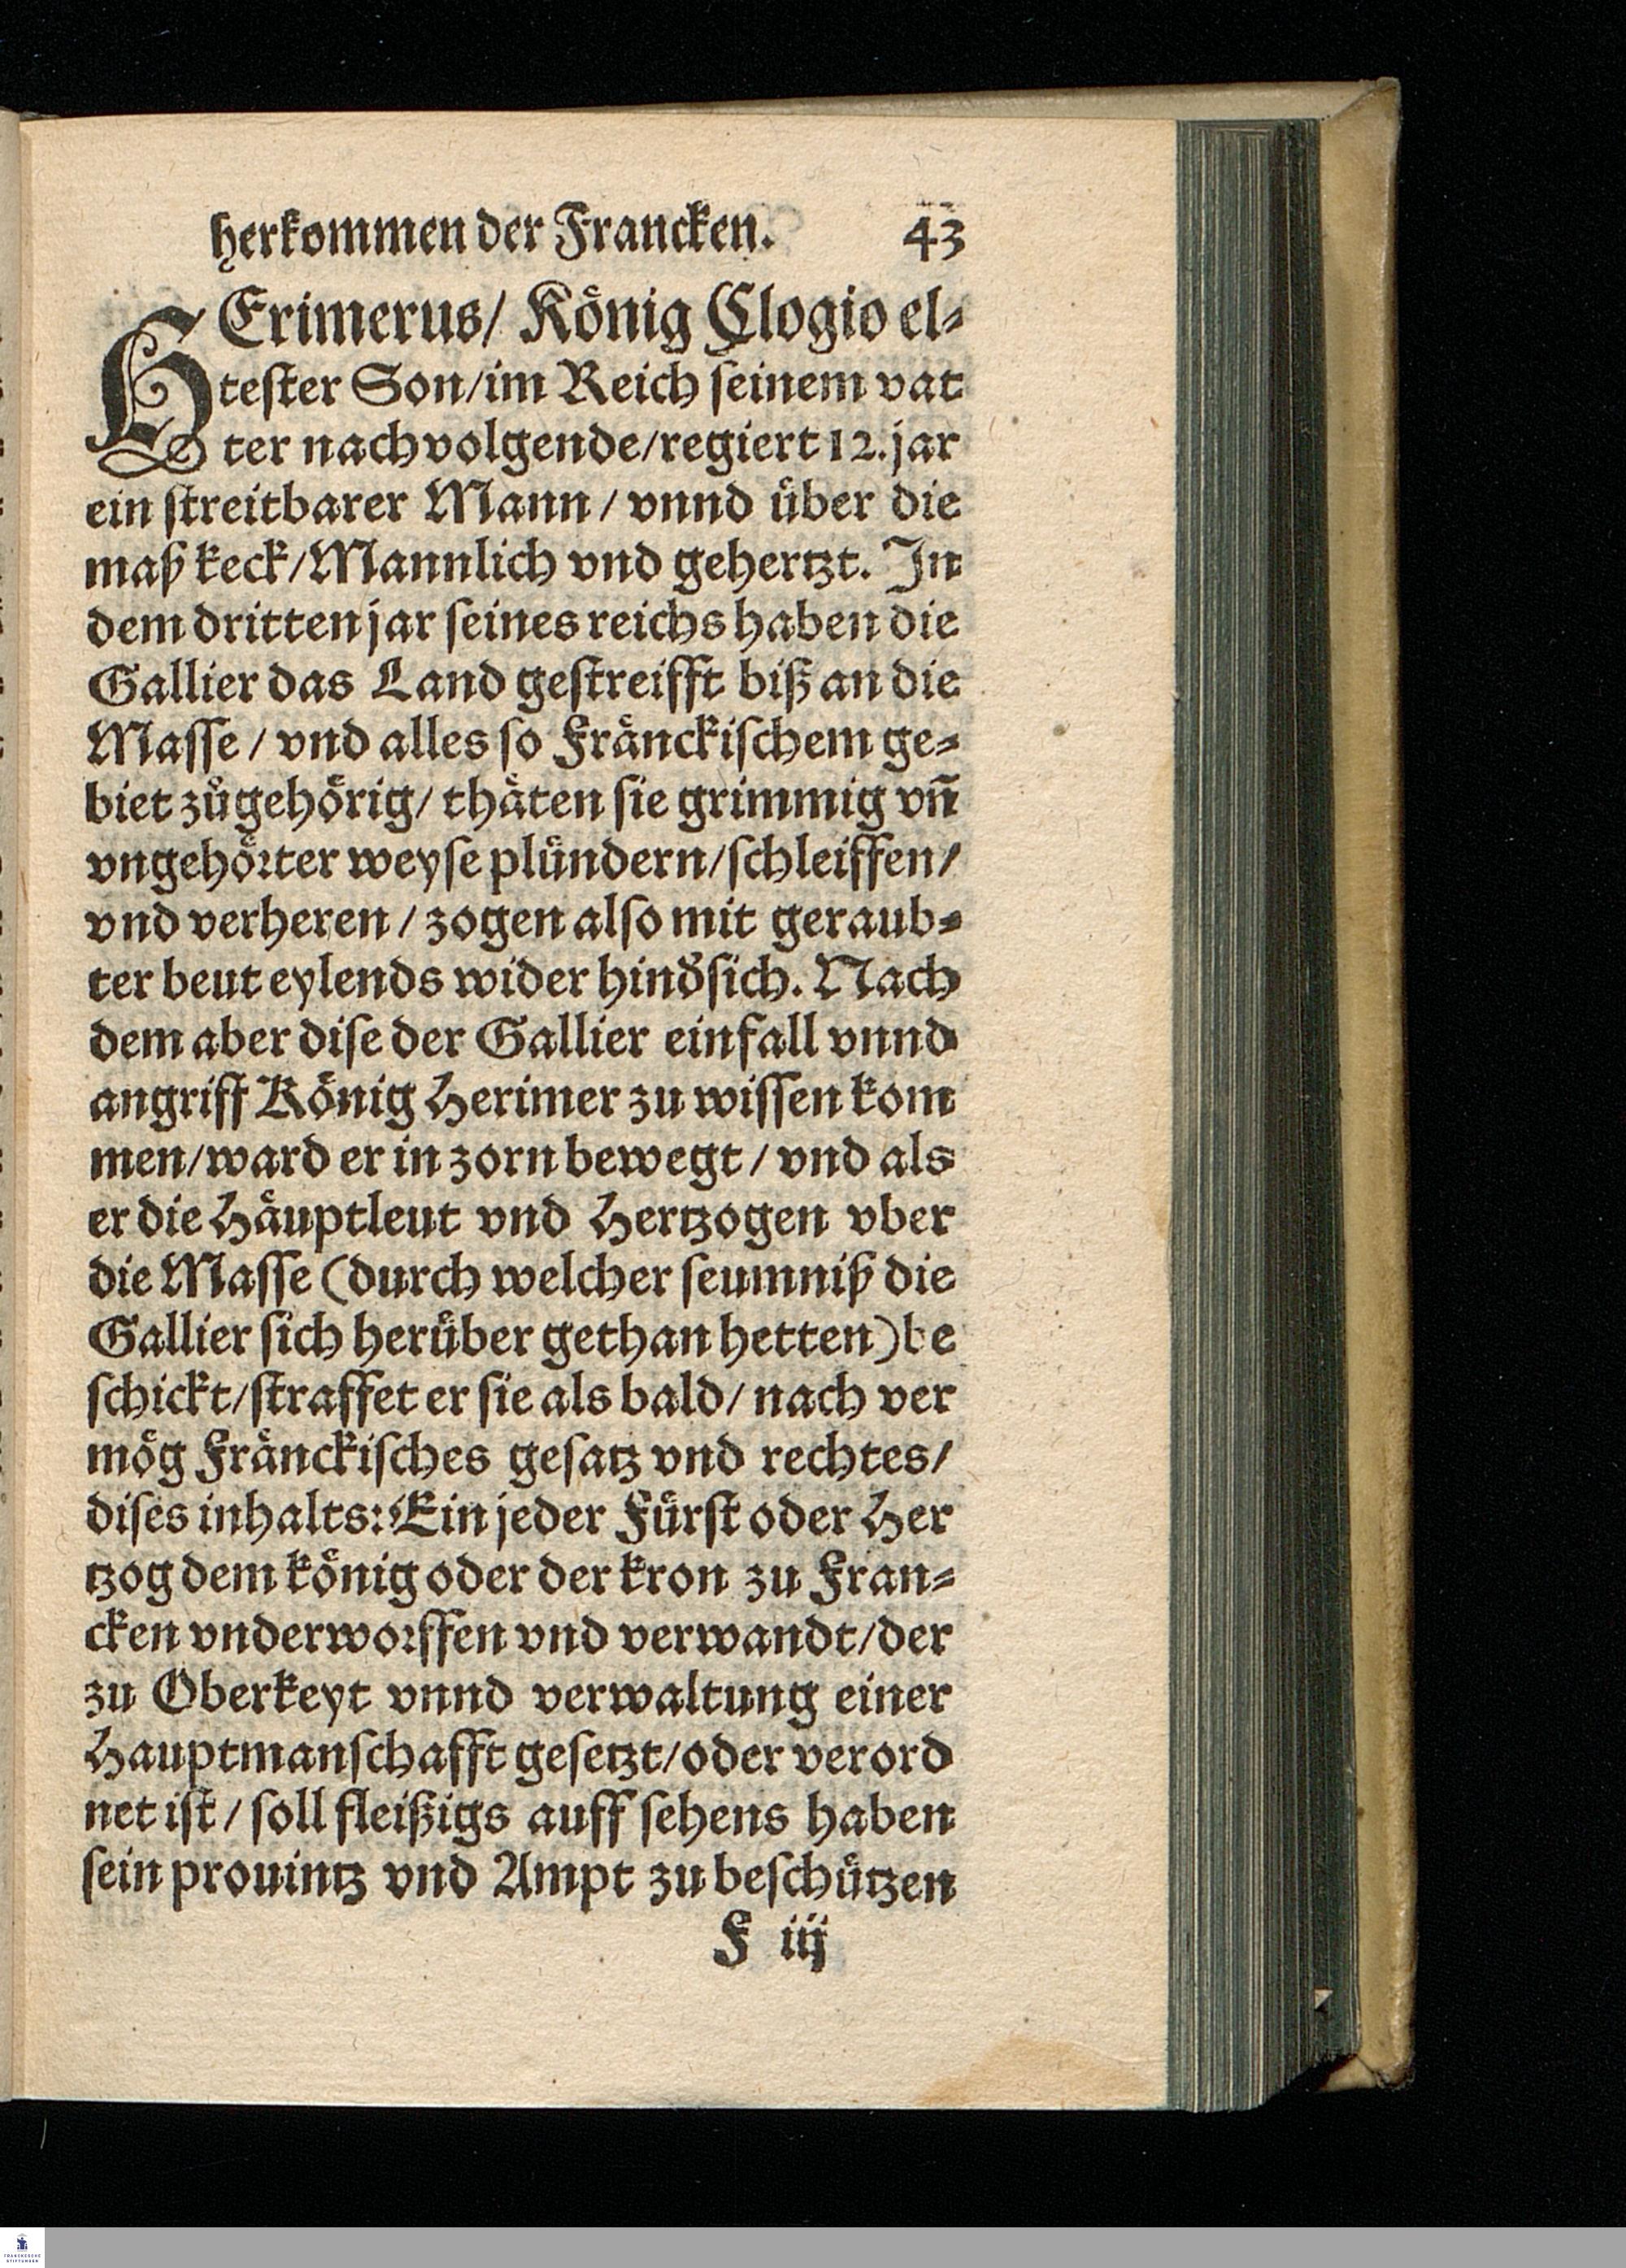 herkommen der Francken. 43
HErimerus/ König Clogio el⸗
teſter Son/im Reich ſeinem vat
ter nachvolgende/regiert 12.jar
ein ſtreitbarer Mann / vnnd über die
maß keck/Mannlich vnd gehertzt. In
dem dritten jar ſeines reichs haben die
Gallier das Land geſtreifft biß an die
Maſſe / vnd alles ſo Fränckiſchem ge⸗
biet zůgehörig/ thäten ſie grimmig vñ
vngehörter weyſe plündern/ſchleiffen/
vnd verheren / zogen alſo mit geraub⸗
ter beut eylends wider hindſich. Nach
dem aber diſe der Gallier einfall vnnd
angriff König Herimer zu wiſſen kom
men/ward er in zorn bewegt / vnd als
er die Häuptleut vnd Hertzogen vber
die Maſſe (durch welcher ſeumniß die
Gallier ſich herüber gethan hetten) be
ſchickt/ſtraffet er ſie als bald/ nach ver
mög Fränckiſches geſatz vnd rechtes/
diſes inhalts: Ein jeder Fürſt oder Her
tzog dem könig oder der kron zu Fran⸗
cken vnderworffen vnd verwandt/der
zu Oberkeyt vnnd verwaltung einer
Hauptmanſchafft geſetzt/oder verord
net iſt / ſoll fleißigs auff ſehens haben
ſein prouintz vnd Ampt zu beſchützen
F iij
FRANCKESCHE
STIFTUNGEN